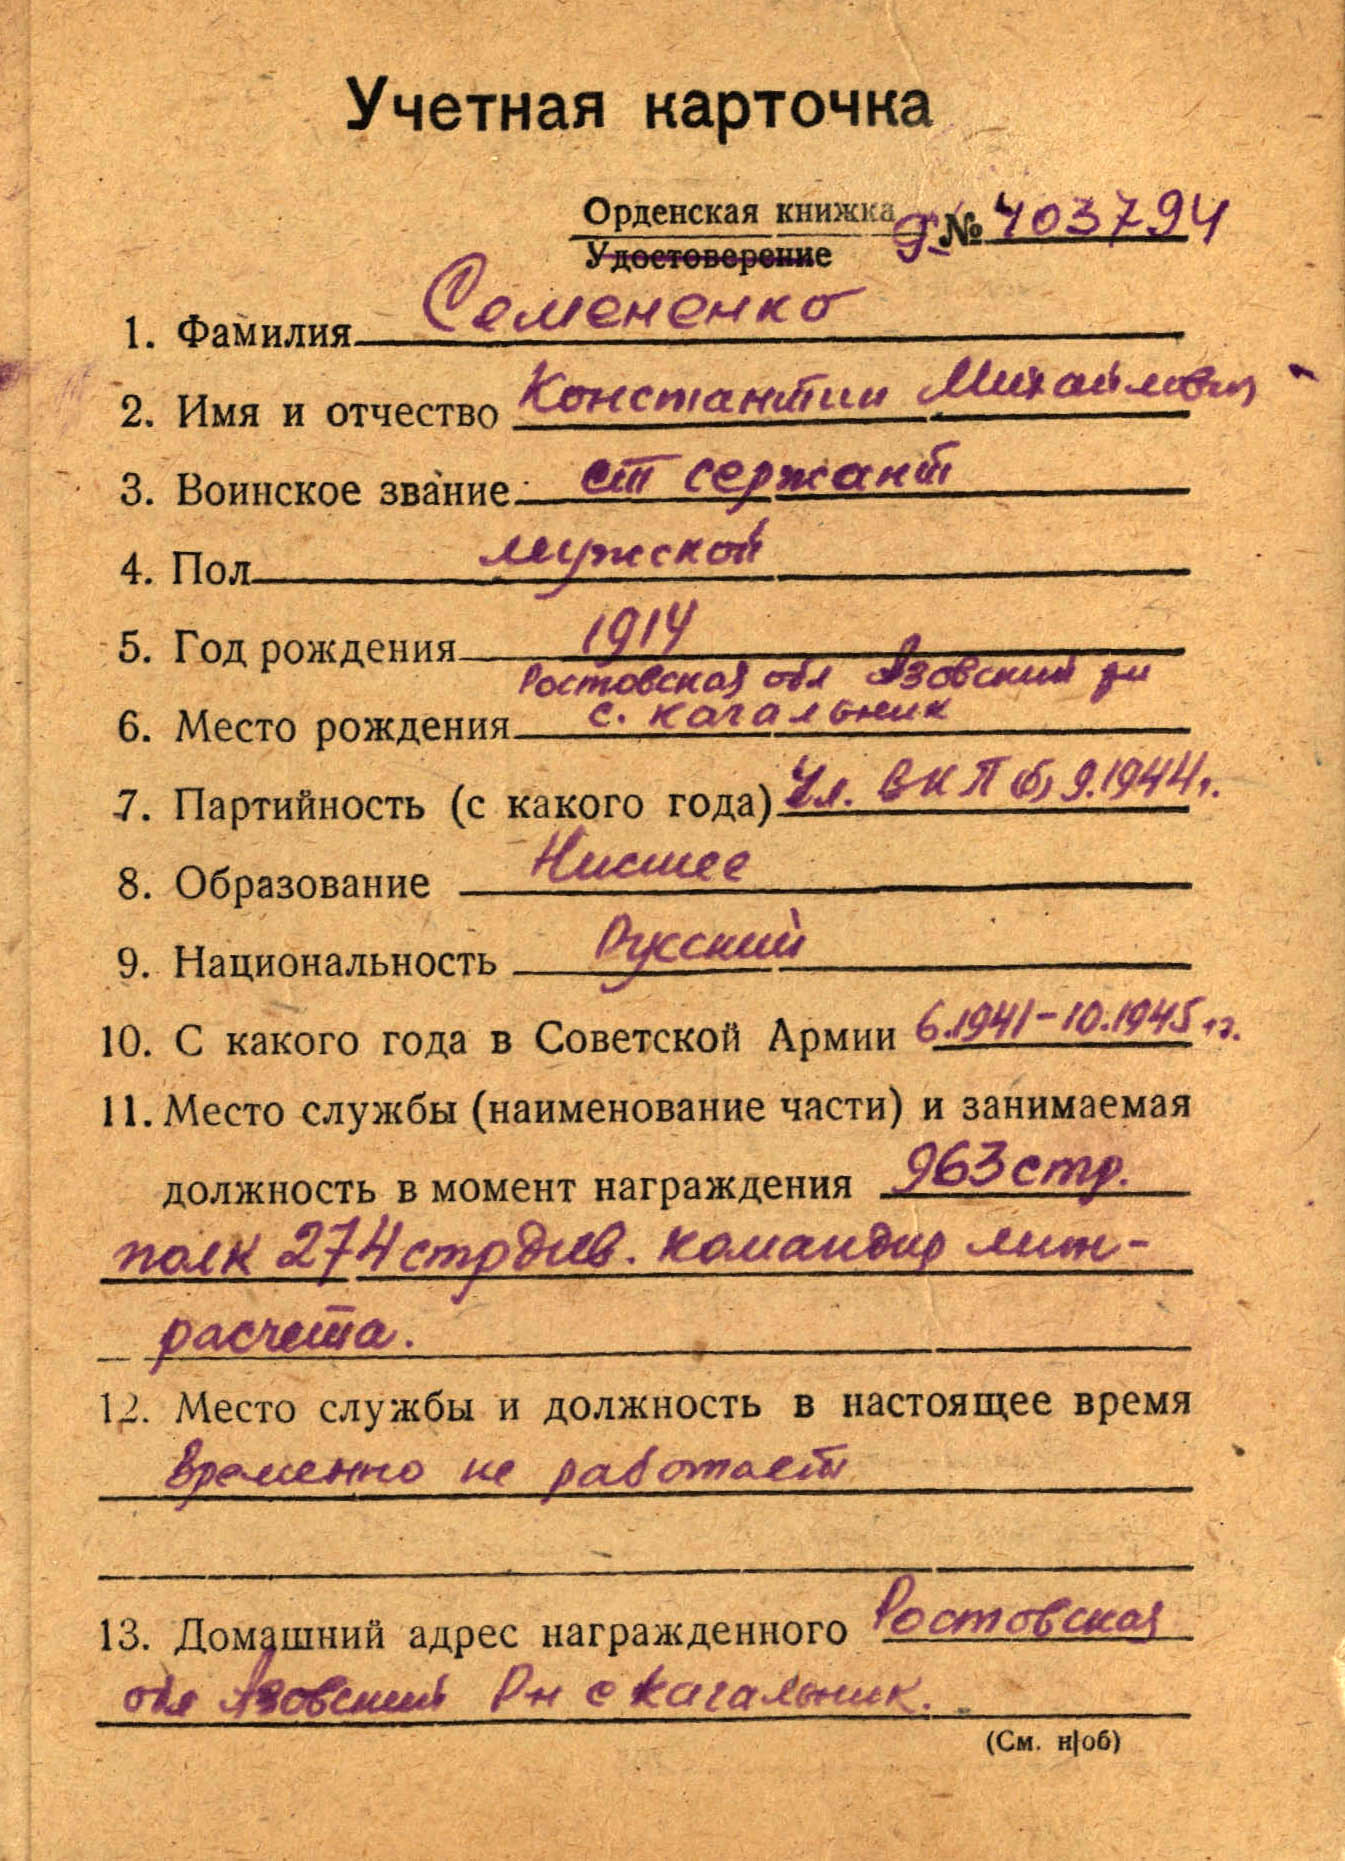 Учетная карточка
Орденская книжка
Удостоверение
№ 403794
1. Фамилия Семененко
2. Имя и отчество Константин Михайлович
3. Воинское звание ст сержант
4. Пол мужской
5. Год рождения 1914
Ростовская обл Азовский рн
6. Место рождения с. Кагальник
7. Партийность (с какого года) Чл. ВКП(б) 9.1944г.
8. Образование Нисшее
9. Национальность Русский
10. С какого года в Советской Армии 6.1941-10.1945 гг.
11. Место службы (наименование части) и занимаемая
должность в момент награждения 963 стр.
полк 274 стр див. командир мин-
расчета.
12. Место службы и должность в настоящее время
Временно не работает
13. Домашний адрес награжденного Ростовская
обл Азовский Рн с Кагальник.
(См. н/об)